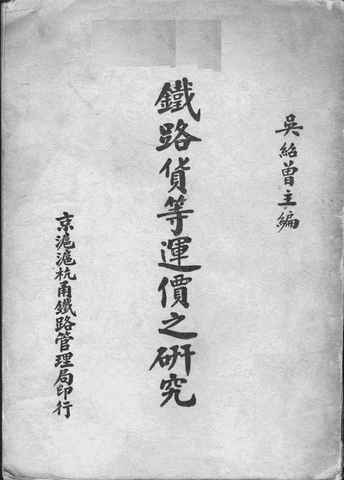 吳紹曾主編
鐵路貨等運價之研究
京滬滬杭甬鐵路管理局印行